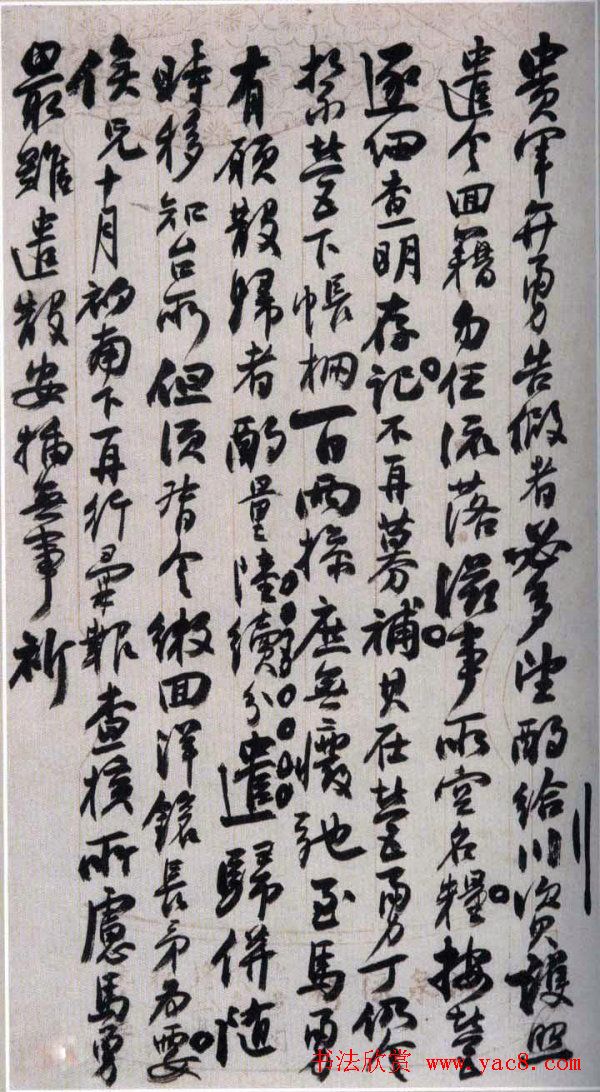 貴軍弁勇告假者必多望酌給川資護照
遣令回籍勿任流落滋事所空名糧按營
逐細查明存記不再募補其在營勇丁仍令
紮營下帳棚一百兩操庶無癈弛至馬勇
有願散歸者酌量陸續分遣歸併隨
時移知台所但須飭令繳回洋鎗長矛為要
俟兄十月初南下再行彙報查核所慮馬勇
最難遣散安插無事祈
书法欣赏 www.yac8.com